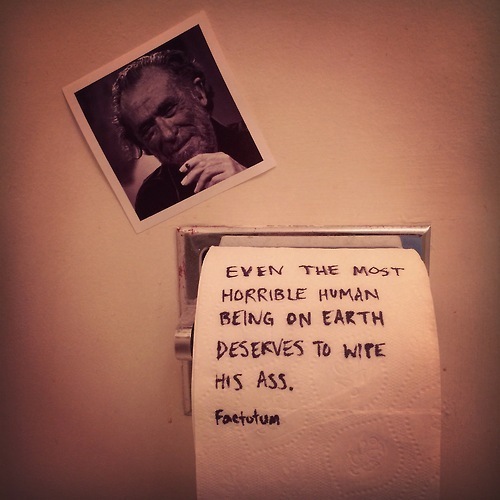 EVEN THE MOST
HORRIBLE HUMAN
BEING ON EARTH
DESERVES TO WIPE
HIS ASS.
Factotum